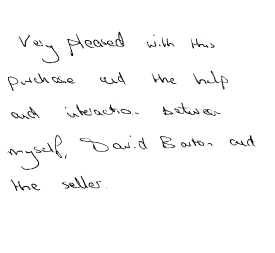 Very pleased with this
purchase and the help
and interaction between
myself, David Barton and
the seller.